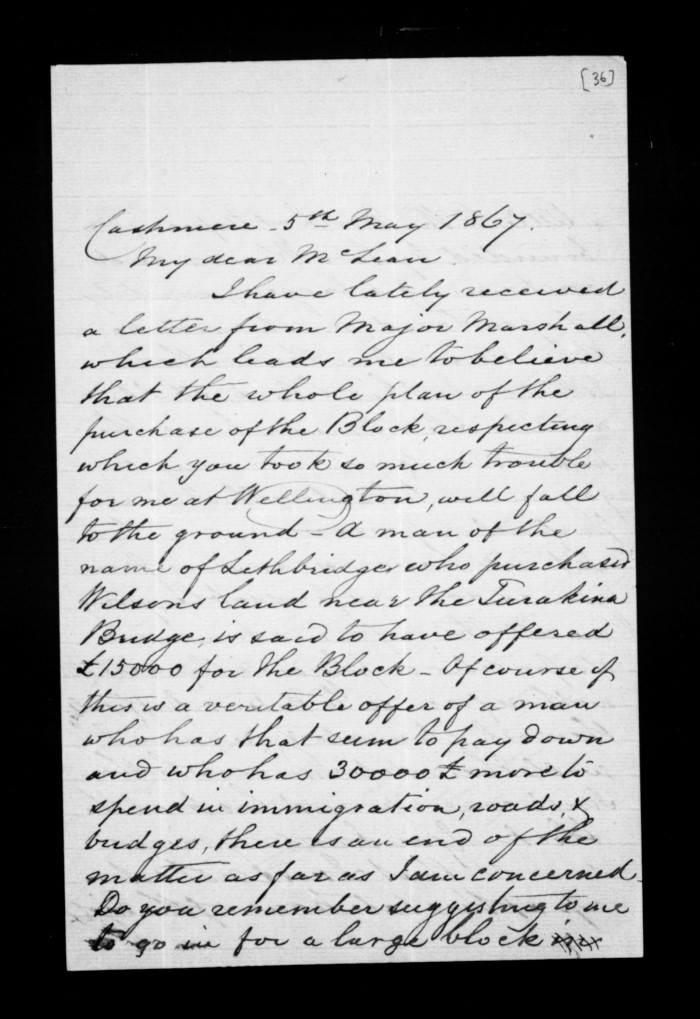 [36]
Cashmere - 5th May 1867.
My dear McLean
I have lately received
a letter from Major Marshall,
which leads me to believe
that the whole plan of the
purchase of the Block, respecting
which you took so much trouble
for me at Wellington, will fall
to the ground - A man of the
name of Lethbridge who purchased
Wilsons land near the Turakina
Bridge, is said to have offered
£15000 for the Block - Of course if
this is a veritable offer of a man
who has that sum to pay down
and who has 30000 £ more to
spend in immigration, roads, &
bridges, there is an end of the
matter as far as I am concerned -
Do you remember suggesting to me
to go in for a large block